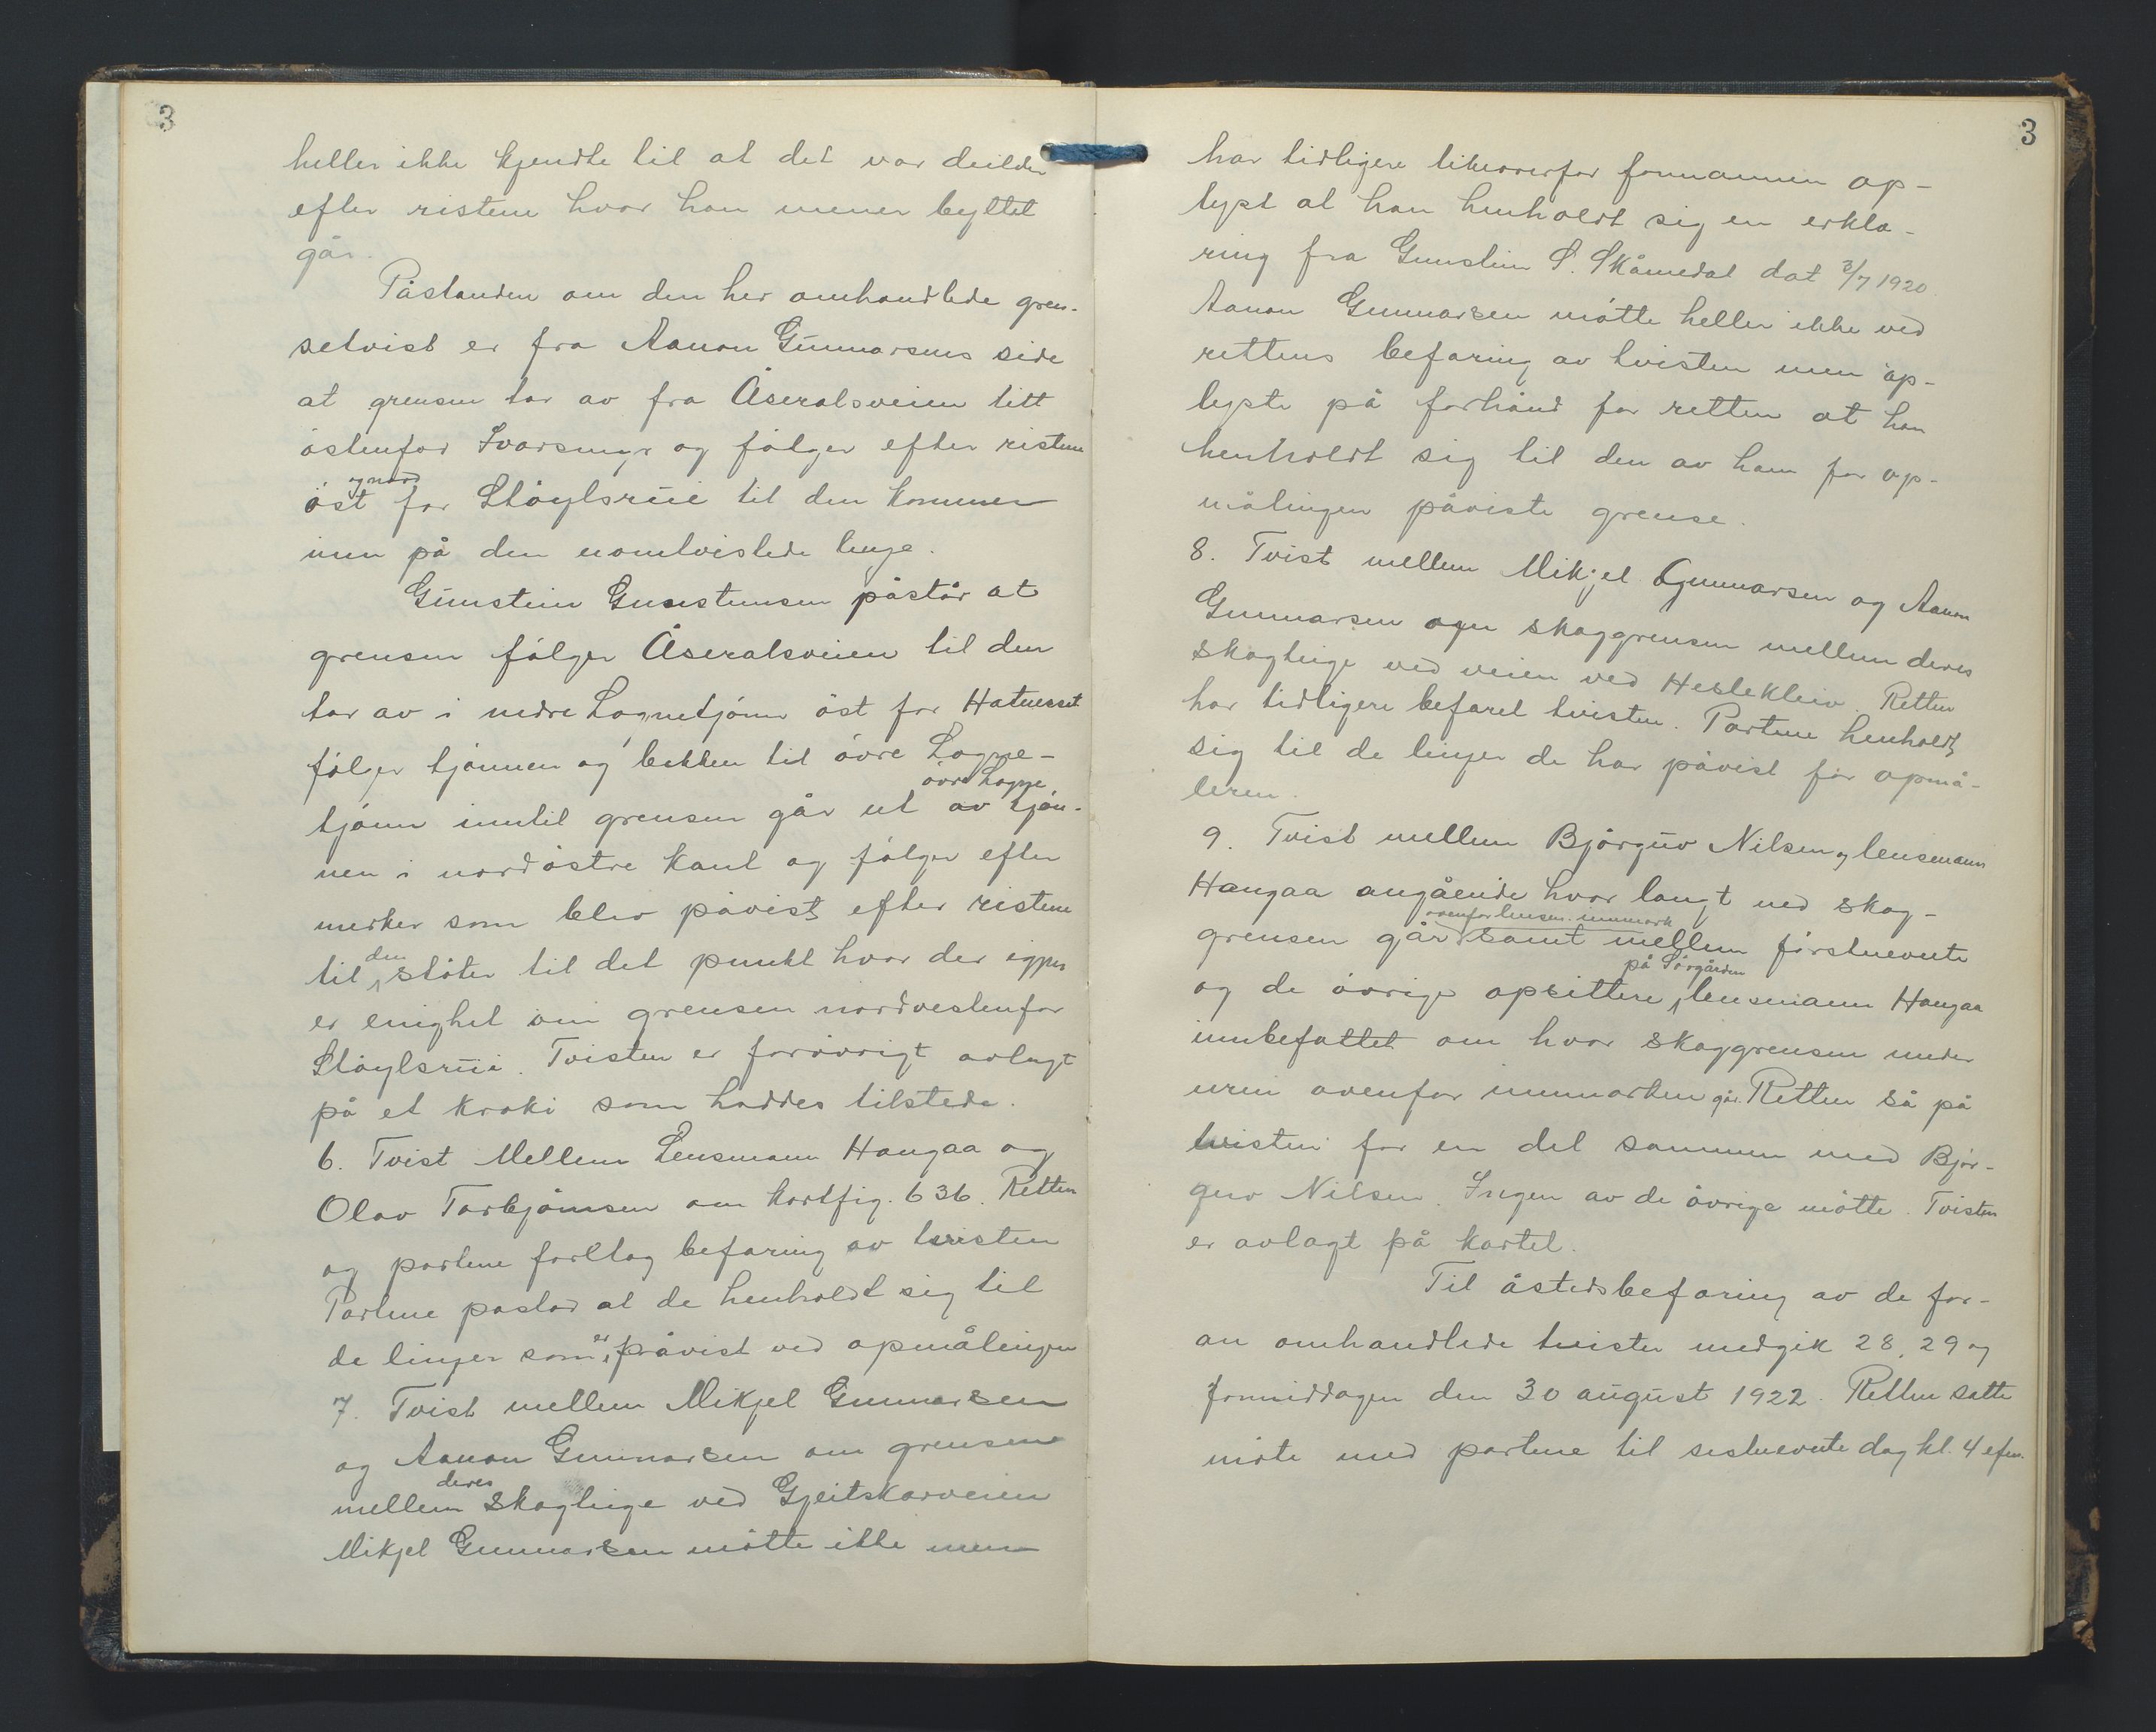 3
heller ikke kjendte til at det var deilder
efter ristene hvor han mener byttet
går.
Påstanden om den her omhandlede gren-
setvist er fra Aanon Gunnarsens side
at grensen tar av fra Åseralsveien litt
østenfor Ivarsmyr og følger efter ristene
og nord
øst for Støylsrui til den kommer
inn på den uomtvistede linje.
Gunstein Gunsteinsen påstår at
grensen følger Åseralsveien til den
tar av i nedre Lognetjønn øst for Hatnesset
følger tjønnen og bekken til øvre Logne-
øvre Logne
tjønn inntil grensen går ut av tjøn-
nen i nordøstre kant og følger efter
merker som blev påvist efter ristene
den
til støter til det punkt hvor der igjen
er enighet om grensen nordvestenfor
Støylsrui. Tvisten er forøvrigt avlagt
på et kroki som haddes tilstede.
6. Tvist Mellem Lensmann Haugaa og
Olav Torbjørnsen om kartfig. 636. Retten
og partene foretog befaring av tvisten
Partene påstod at de henholdt sig til
er
de linjer som påvist ved opmålingen
7. Tvist mellem Mikjel Gunnarsen
og Aanon Gunnarsen om grensene
deres
mellem skogteige ved Gjeitskarveien
Mikjel Gunnarsen møtte ikke men
3
har tidligere likeoverfor formannen op-
lyst at han henholdt sig en erklæ-
ring fra Gunstein S. Skåmedal dat 3/7 1920
Aanon Gunnarsen møtte heller ikke ved
rettens befaring av tvisten men op-
lyste på forhånd for retten at han
henholdt sig til den av ham for op-
målingen påviste grense.
8. Tvist mellem Mikjel Gunnarsen og Aanon
Gunnarsen om skoggrensen mellem deres
skogteige ved veien ved Heslekleiv. Retten
har tidligere befaret tvisten. Partene henholdt
sig til de linjer de har påvist for opmå-
leren.
9. Tvist mellem Bjørguv Nilsen og lensmann
Haugaa angående hvor langt ned skog-
ovenfor lensm. innmark
grensen går samt mellem førstnevnte
på Sørgården
og de øvrige opsittere, lensmann Haugaa
innbefattet om hvor skoggrensen under
uren ovenfor innmarken går. Retten så på
tvisten for en del sammen med Bjør-
guv Nilsen. Ingen av de øvrige møtte. Tvisten
er avlagt på kartet.
Til åstedsbefaring av de for-
an omhandlede tvister medgik 28, 29 og
formiddagen den 30 august 1922. Retten satte
møte med partene til sistnevnte dag kl. 4 efm.